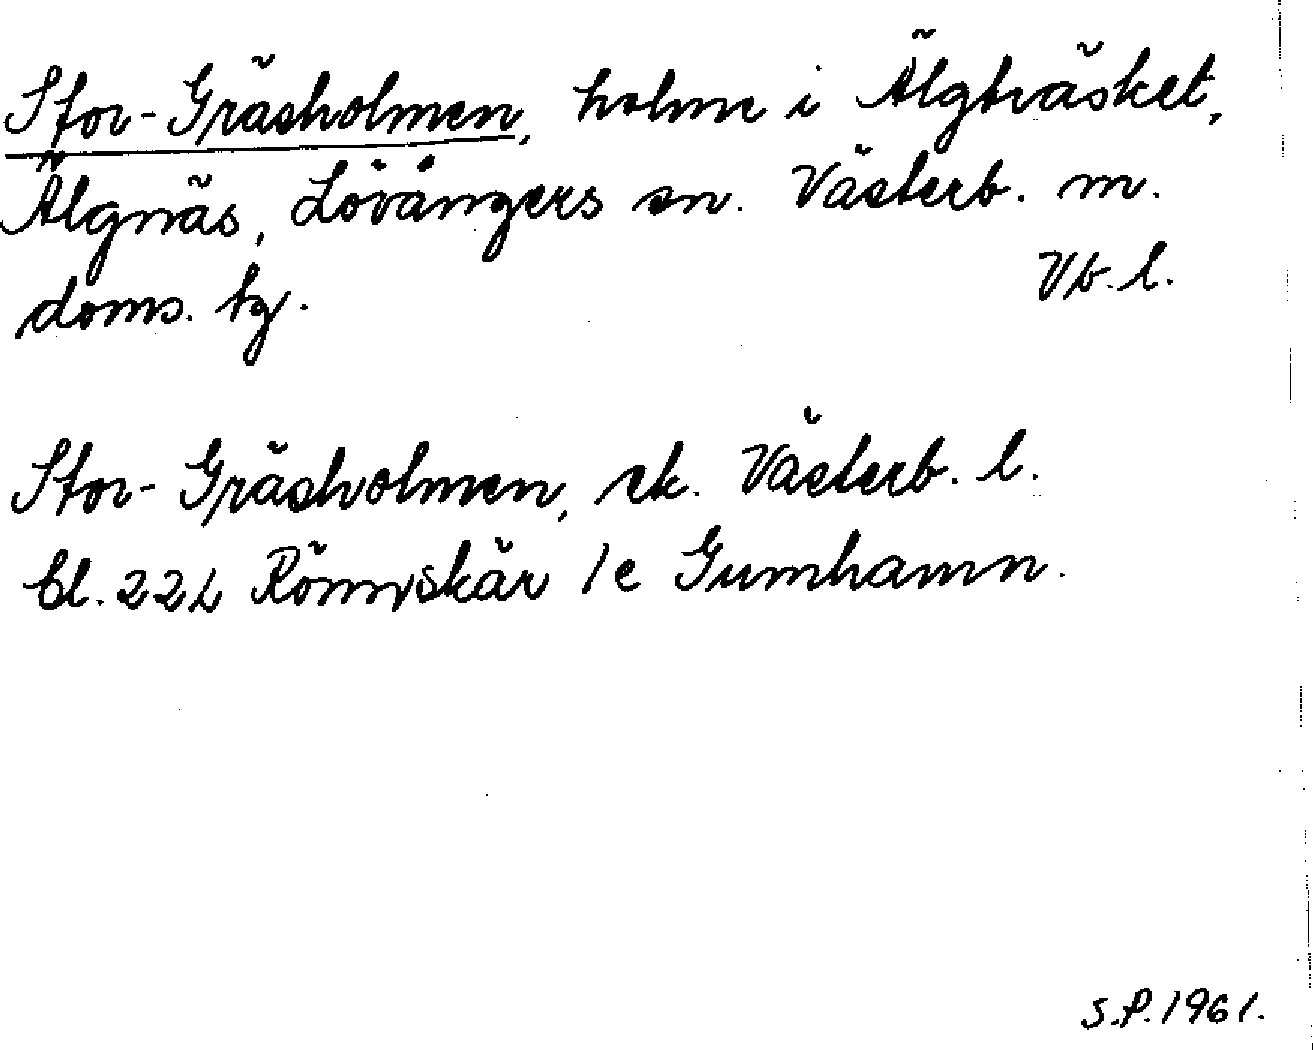 Stor-Gräsholmen, holme i Älgträsket,
Älgnäs, Lövångers sn. Västerb. m.
doms. tg. Vb. l.
Stor-Gräsholmen, ek. Västerb. l.
bl. 22L Rönnskär 1e Gumhamn.
S.P. 1961.